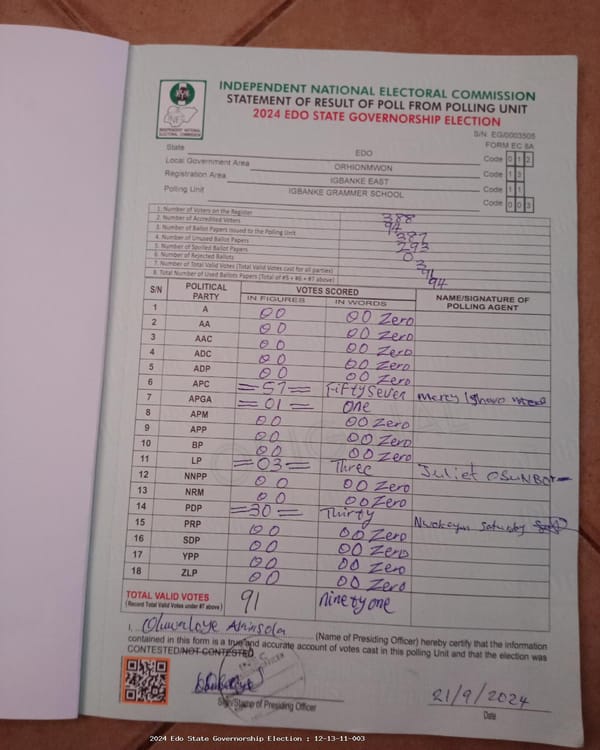 INDEPENDENT NATIONAL ELECTORAL COMMISSION
STATEMENT OF RESULT OF POLL FROM POLLING UNIT
2024 EDO STATE GOVERNORSHIP ELECTION
INDEPENDENT NATIONAL ELECTORAL COMMISSION
S/N: EG/0003505
FORM EC 8A
State EDO Code 0 1 2
Local Government Area ORHIONMWON Code 1 3
Registration Area IGBANKE EAST Code 1 1
Polling Unit IGBANKE GRAMMER SCHOOL Code 0 0 3
1. Number of Voters on the Register 388
2. Number of Accredited Voters 94
3. Number of Ballot Papers Issued to the Polling Unit 387
4. Number of Unused Ballot Papers 293
5. Number of Spoiled Ballot Papers 0
6. Number of Rejected Ballots 03
7. Number of Total Valid Votes (Total Valid Votes cast for all parties) 91
8. Total Number of Used Ballots Papers (Total of #5 + #6 + #7 above) 94
S/N POLITICAL PARTY VOTES SCORED NAME/SIGNATURE OF POLLING AGENT
IN FIGURES IN WORDS
1 A 00 00 Zero
2 AA 00 00 Zero
3 AAC 00 00 Zero
4 ADC 00 00 Zero
5 ADP 00 00 Zero
6 APC =57= Fifty Seven Mercy
7 APGA =01= One
8 APM 00 00 Zero
9 APP 00 00 Zero
10 BP 00 00 Zero
11 LP =03= Three Juliet
12 NNPP 00 00 Zero
13 NRM 00 00 Zero
14 PDP =30= Thirty Saturday
15 PRP 00 00 Zero
16 SDP 00 00 Zero
17 YPP 00 00 Zero
18 ZLP 00 00 Zero
TOTAL VALID VOTES 91 Ninety one
(Record Total Valid Votes under #7 above)
I, (Name of Presiding Officer) hereby certify that the information
contained in this form is a true and accurate account of votes cast in this polling Unit and that the election was
CONTESTED/NOT CONTESTED.
21/9/2024
Sign/Stamp of Presiding Officer Date
2024 Edo State Governorship Election : 12-13-11-003